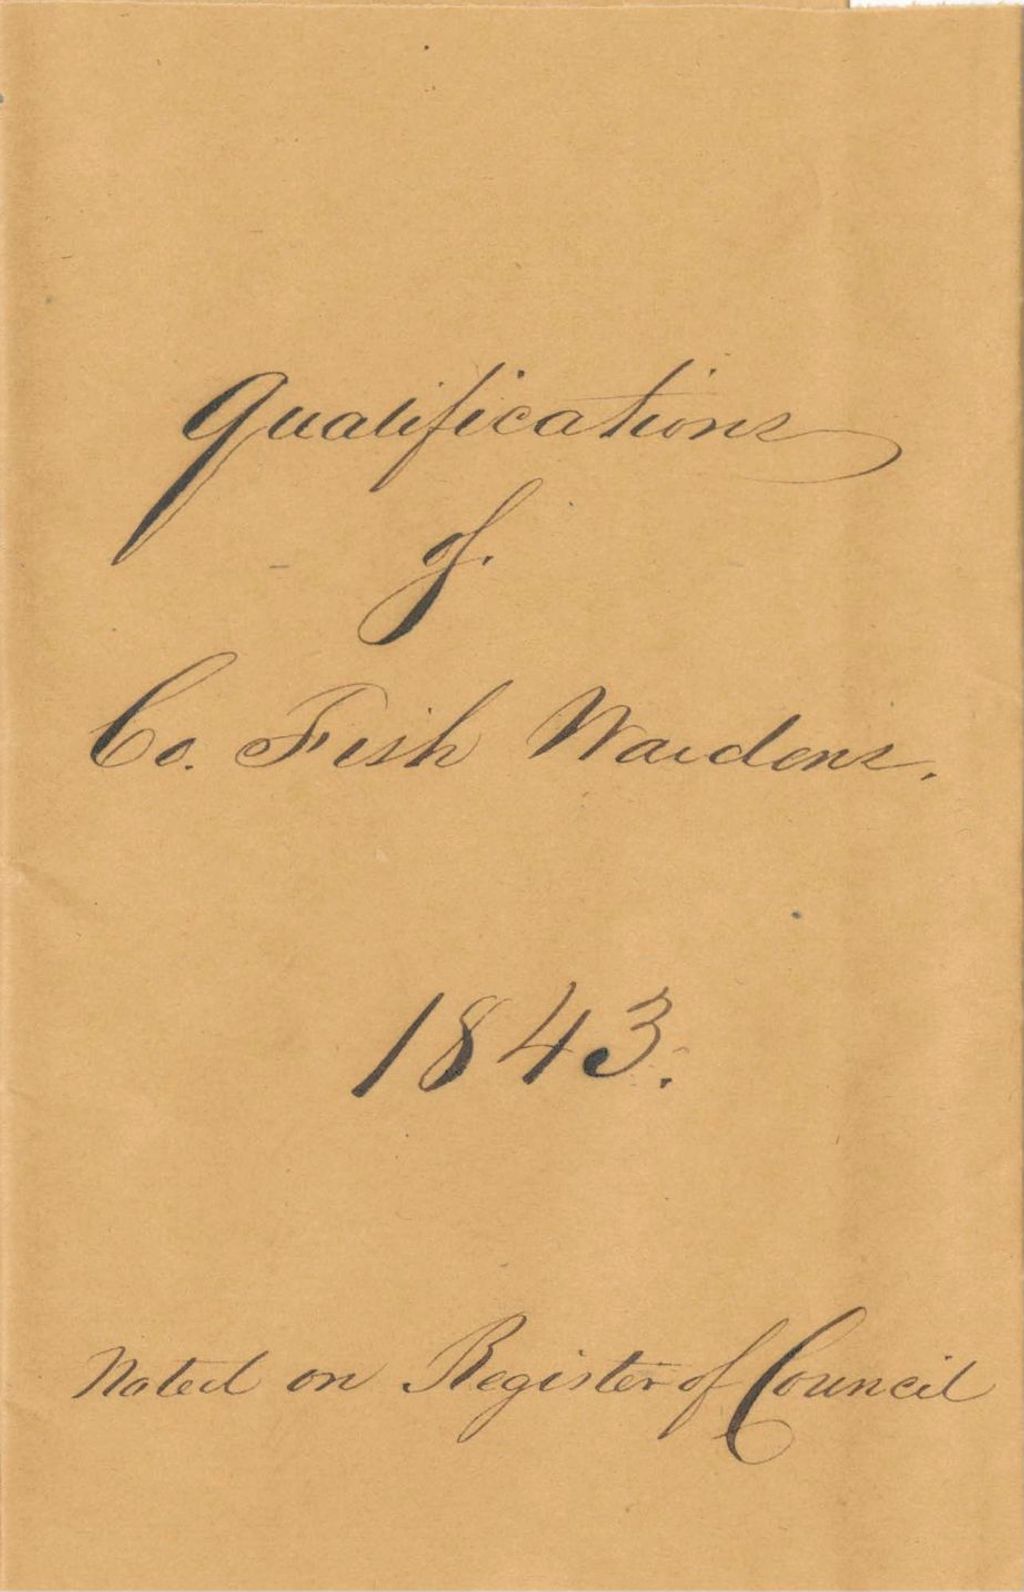 Qualifications
of.
Co. Fish Wardens.
1843.
Noted on Register of Council